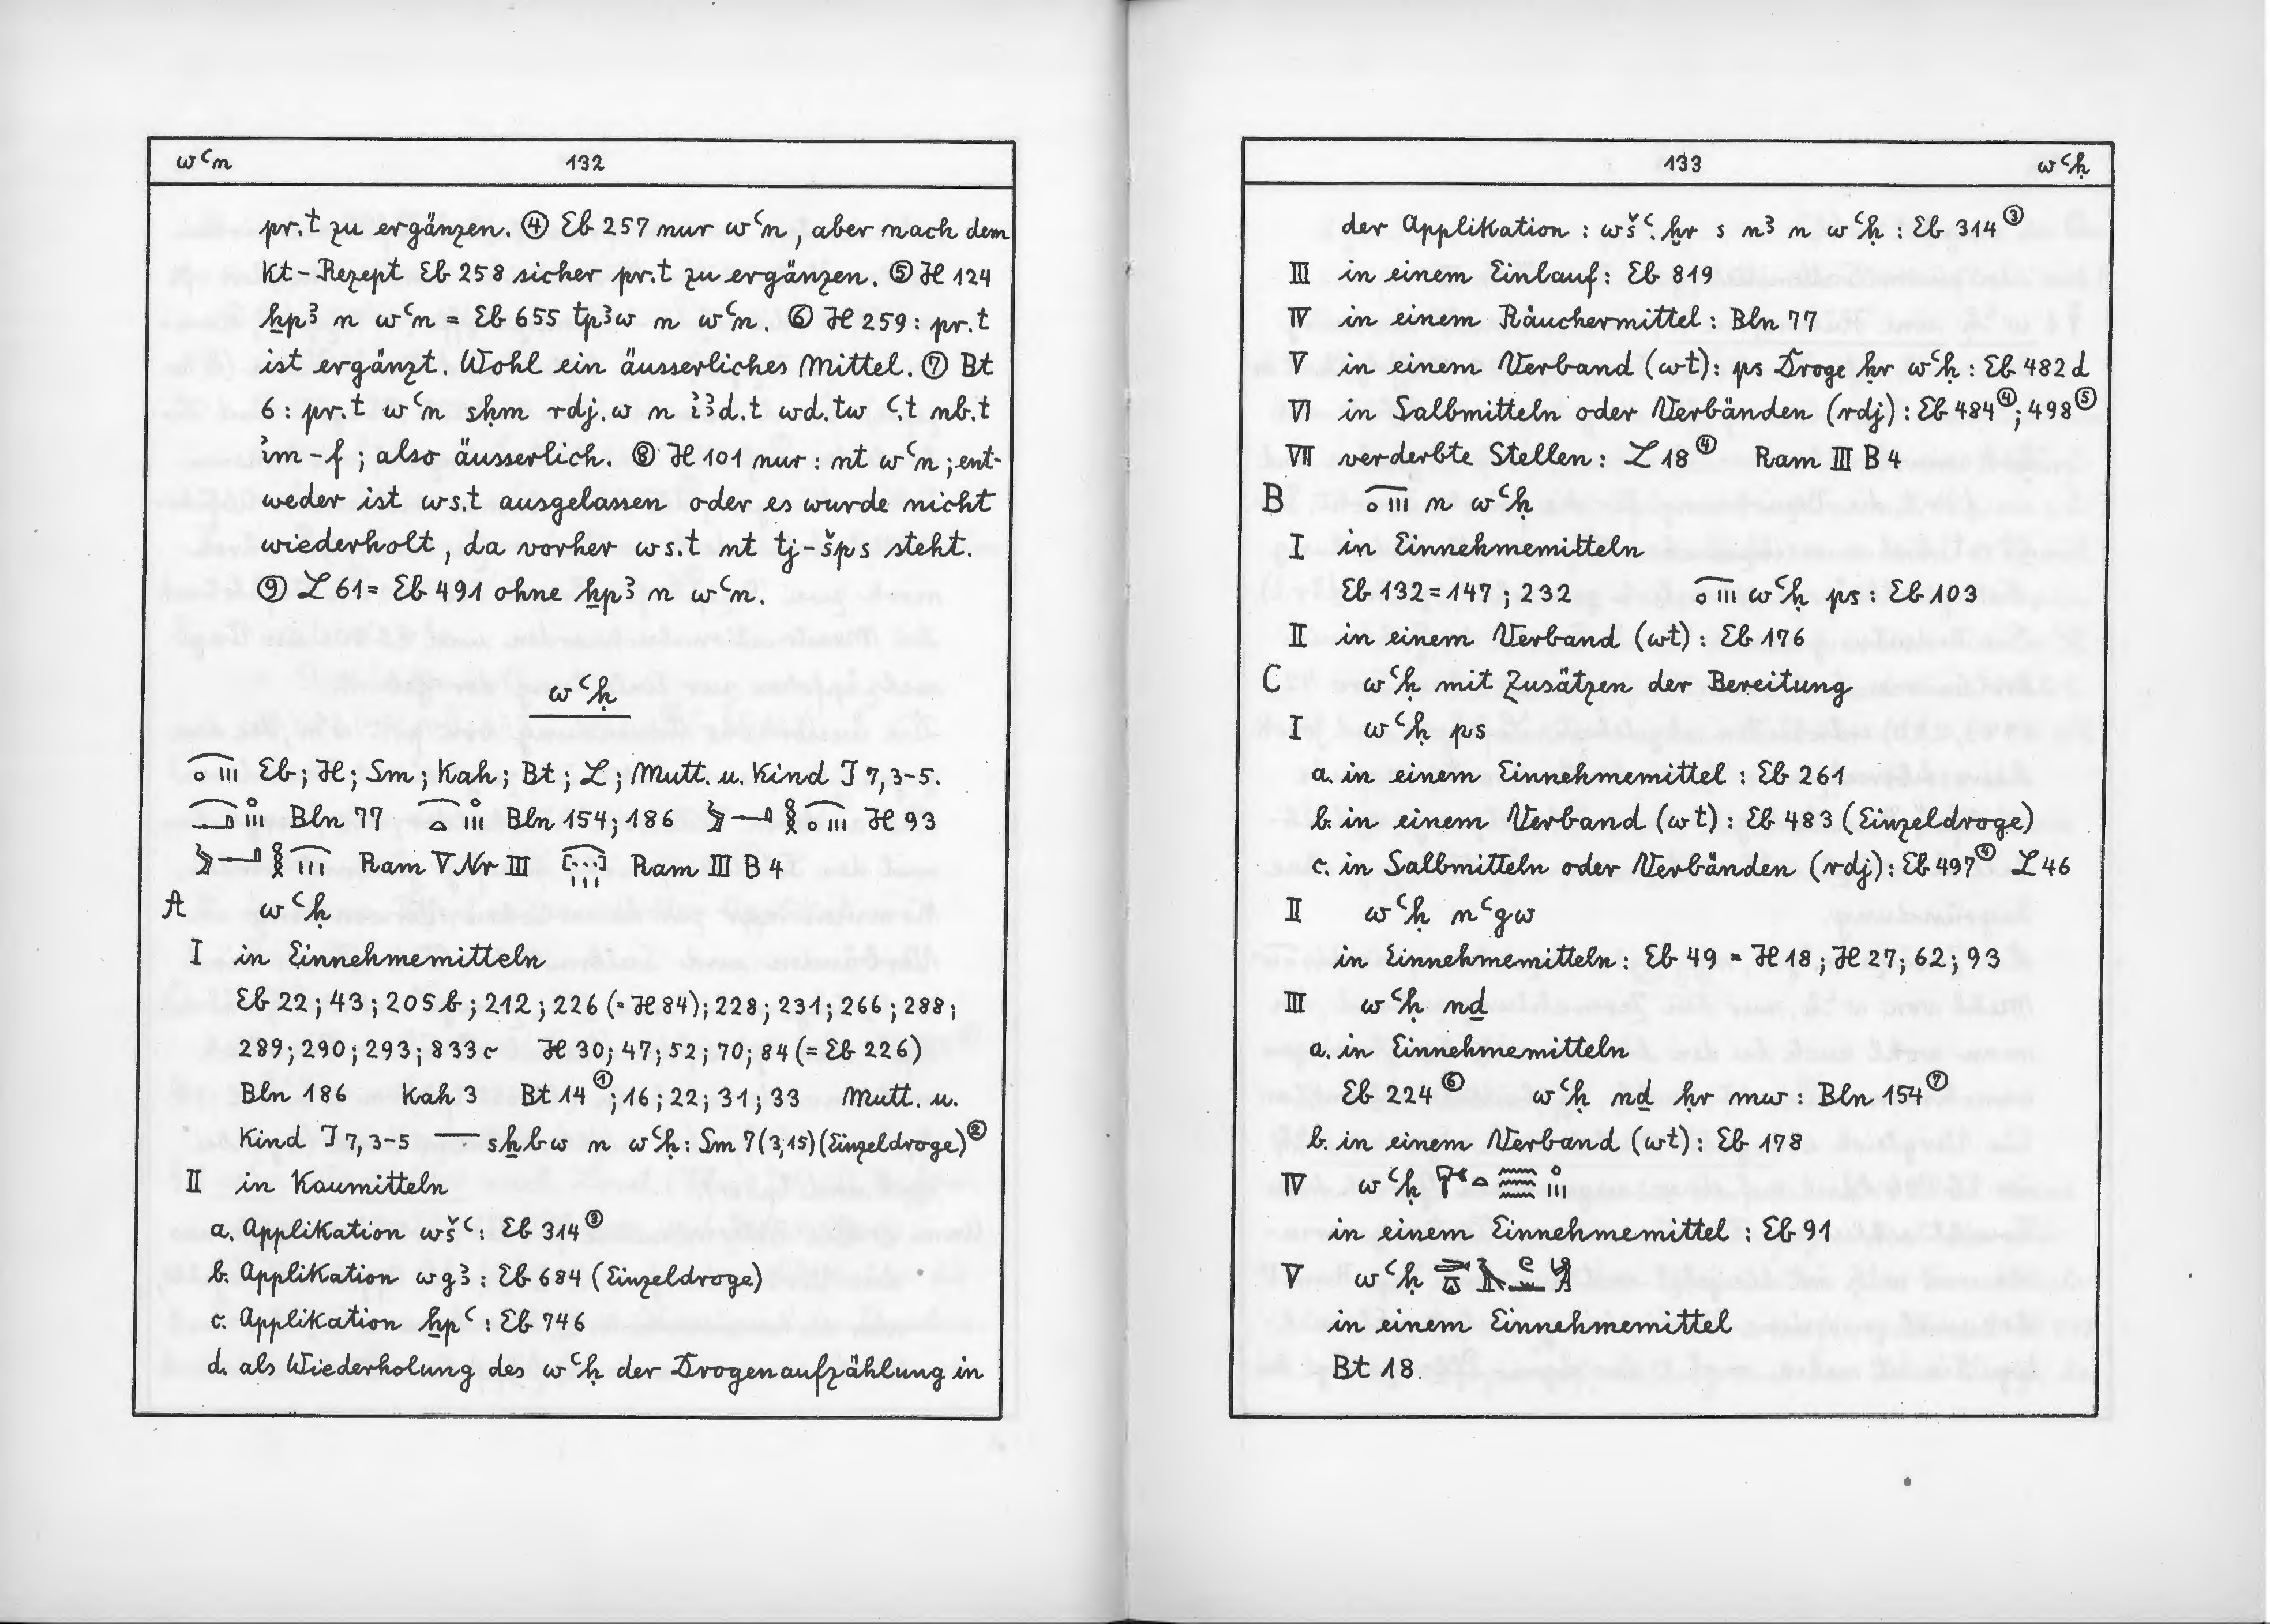 wꜥn 132
pr.t zu ergänzen. ④ Eb 257 nur wꜥn, aber nach dem
Kt-Rezept Eb 258 sicher pr.t zu ergänzen. ⑤ H 124
ẖpꜣ n wꜥn = Eb 655 tpꜣw n wꜥn. ⑥ H 259: pr.t
ist ergänzt. Wohl ein äusserliches Mittel. ⑦ Bt
6: pr.t wꜥn sḥm rdj.w n iꜣd.t wd.tw ꜥ.t nb.t
im-f; also äusserlich. ⑧ H 101 nur: nt wꜥn; ent-
weder ist ws.t ausgelassen oder es wurde nicht
wiederholt, da vorher ws.t nt tj-šps steht.
⑨ L 61 = Eb 491 ohne ẖpꜣ n wꜥn.
wꜥḥ
Eb; H; Sm; Kah; Bt; L; Mutt. u. Kind I 7,3-5.
Bln 77 Bln 154; 186 H 93
Ram V Nr III Ram III B 4
A wꜥḥ
I in Einnehmemitteln
Eb 22; 43; 205b; 212; 226 (= H 84); 228; 231; 266; 288;
289; 290; 293; 833c H 30; 47; 52; 70; 84 (= Eb 226)
Bln 186 Kah 3 Bt 14①; 16; 22; 31; 33 Mutt. u.
Kind I 7,3-5 sẖbw n wꜥḥ: Sm 7 (3,15) (Einzeldroge)②
II in Kaumitteln
a. Applikation wšꜥ: Eb 314③
b. Applikation wgꜣ: Eb 684 (Einzeldroge)
c. Applikation ẖpꜥ: Eb 746
d. als Wiederholung des wꜥḥ der Drogenaufzählung in
133 wꜥḥ
der Applikation: wšꜥ.ḫr s nꜣ n wꜥḥ: Eb 314③
III in einem Einlauf: Eb 819
IV in einem Räuchermittel: Bln 77
V in einem Verband (wt): ps Droge ḥr wꜥḥ: Eb 482d
VI in Salbmitteln oder Verbänden (rdj): Eb 484④; 498⑤
VII verderbte Stellen: L 18④ Ram III B 4
B n wꜥḥ
I in Einnehmemitteln
Eb 132 = 147; 232 wꜥḥ ps: Eb 103
II in einem Verband (wt): Eb 176
C wꜥḥ mit Zusätzen der Bereitung
I wꜥḥ ps
a. in einem Einnehmemittel: Eb 261
b. in einem Verband (wt): Eb 483 (Einzeldroge)
c. in Salbmitteln oder Verbänden (rdj): Eb 497④ L 46
II wꜥḥ nꜥgw
in Einnehmemitteln: Eb 49 = H 18; H 27; 62; 93
III wꜥḥ nḏ
a. in Einnehmemitteln
Eb 224⑥ wꜥḥ nḏ ḥr mw: Bln 154⑦
b. in einem Verband (wt): Eb 178
IV wꜥḥ
in einem Einnehmemittel: Eb 91
V wꜥḥ
in einem Einnehmemittel
Bt 18.